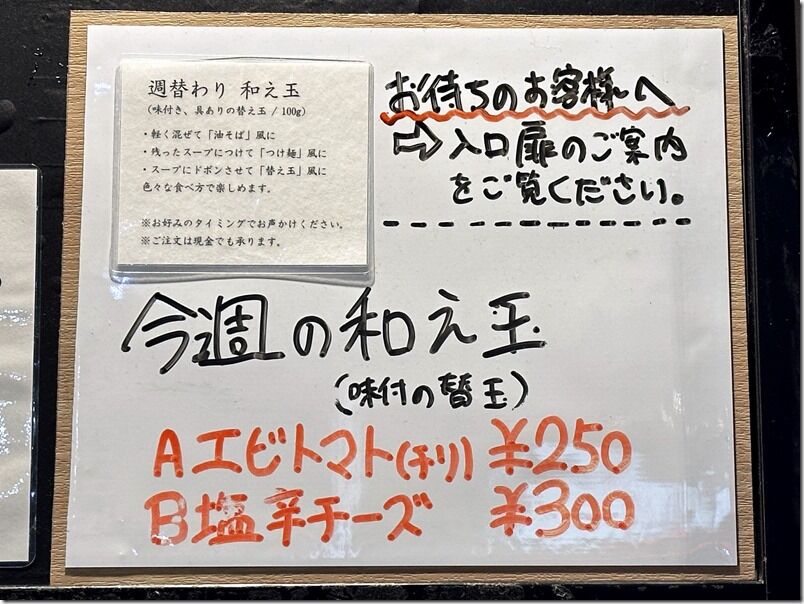 週替わり 和え玉
(味付き、具ありの替え玉 / 100g)
・軽く混ぜて「油そば」風に
・残ったスープにつけて「つけ麺」風に
・スープにドボンさせて「替え玉」風に
色々な食べ方で楽しめます。
※お好みのタイミングでお声かけください。
※ご注文は現金でも承ります。
お待ちのお客様へ
⇨入口扉のご案内
をご覧ください。
今週の和え玉
(味付の替玉)
Aエビトマト(チリ) ¥250
B塩辛チーズ ¥300